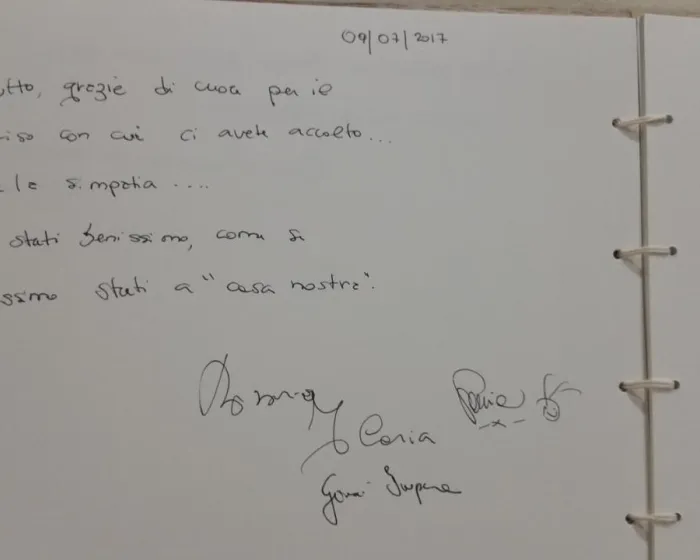 09/07/2017
utto, grazie di cuore per il
riso con cui ci avete accolto...
la simpatia ....
stati benissimo, come se
ssimo stati a "casa nostra".
Ilaria